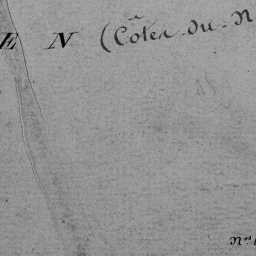 E N (Côtes du N
N°